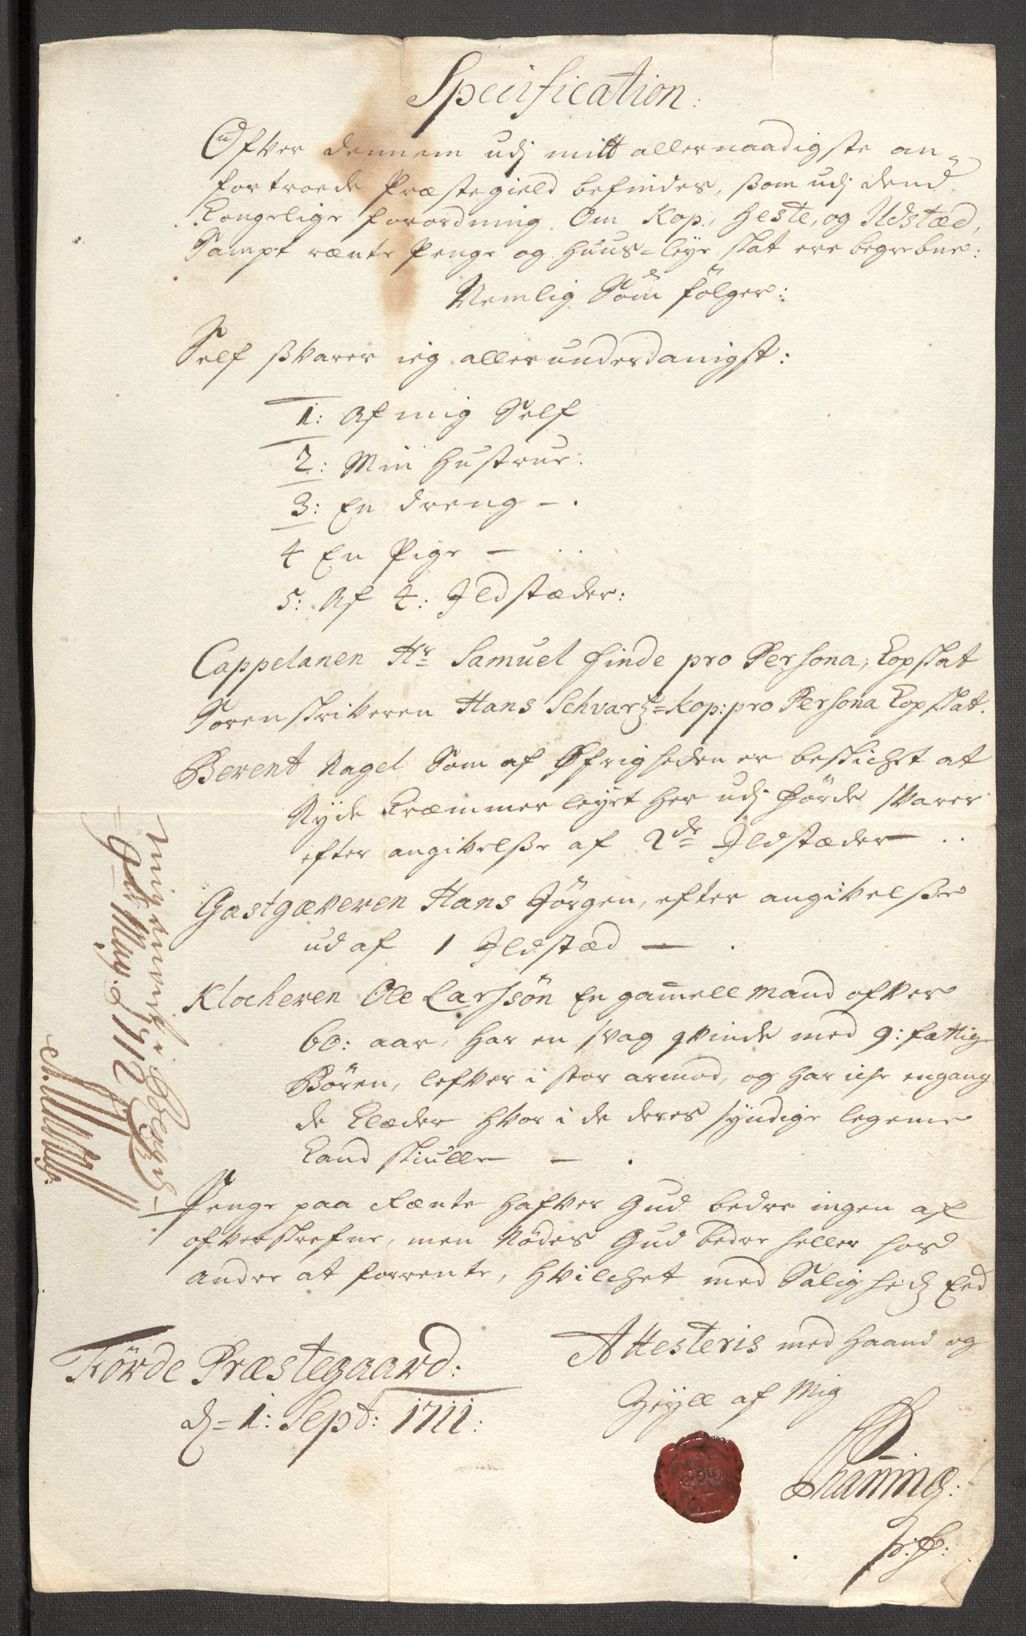 Specification:
Ofver dennem udj mitt allernaadigste an=
fortroede Præstegield befindes, som udj dend
Kongelige forordning Om Kop, Heste, og Ildstæd,
Sampt rænte Penge og Huus=leye skat ere begrebne:
Nemlig Som følger:
Self svarer ieg allerunderdanigst:
1: Af mig Self
2: Min Hustrue:
3: En dreng -.
4 En Pige -
5: Af 4: Ildstæder:
Cappelanen Hr Samuel Finde pro Persona, Kopskat
Sorenskriveren Hans Schvartz=Kop: pro Persona Kopskat.
Berent Nagel Som af Øfrigheden er beskichet at
Nyde Kræmmer leyet her udj Førde svarer
efter angivelse af 2de Ildstæder -
Gastgæveren Hans Jørgen, efter angivelse
ud af 1 Ildstæd -
Klocheren Ole Larssøn En gammell Mand ofver
60: aar, har en svag qvinde med 9: fattige
Børen, lefver i stor armod, og har iche engang
de Klæder hvor i de deres syndige legeme
Kand skiulle - .
Penge paa Rænte hafver Gud bedre ingen af
ofverskrefne, men Nødes Gud bedre heller hos
andre at forrente, hvilchet med Saligheds Eed
Attesteris med Haand og
Zeyll af Mig
Førde Præstegaard:
d= 1: Sept: 1711:
9de May. 1712